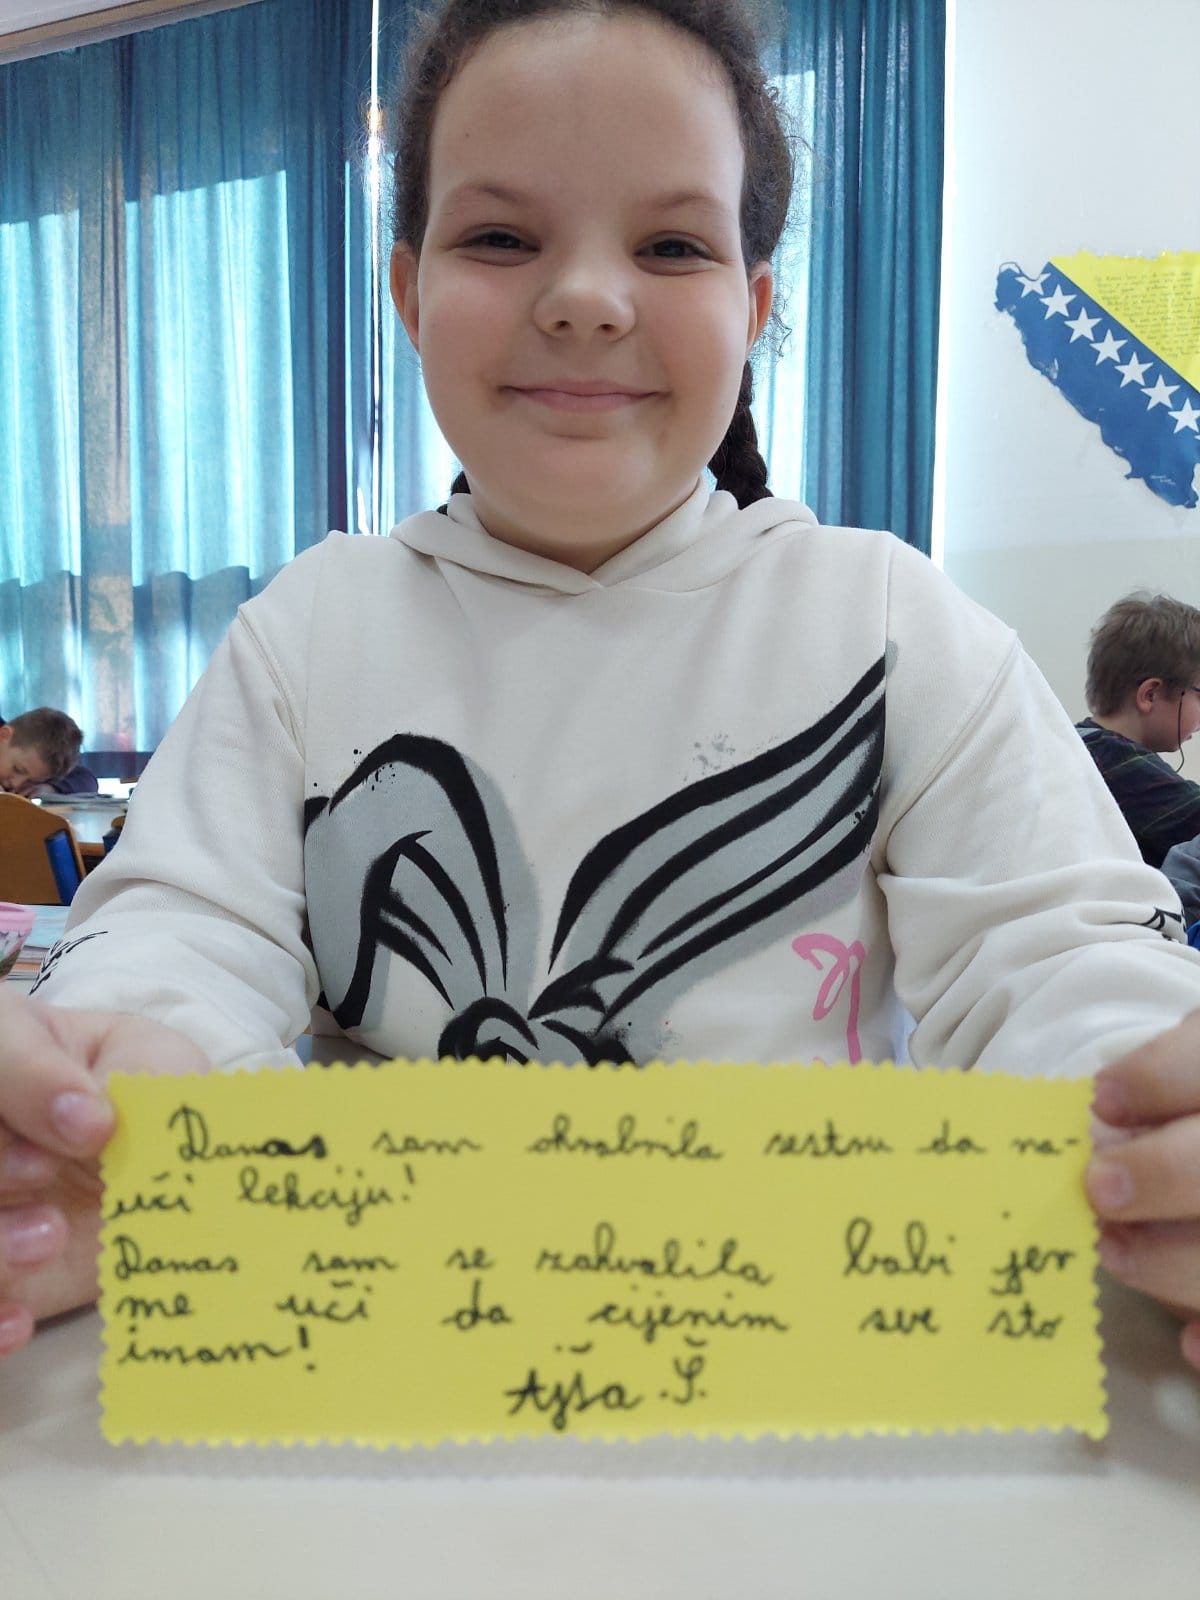 Danas sam ohrabrila sestru da na-
uči lekciju!
Danas sam se zahvalila babi jer
me uči da cijenim sve sto
imam!
Ajša .Š.